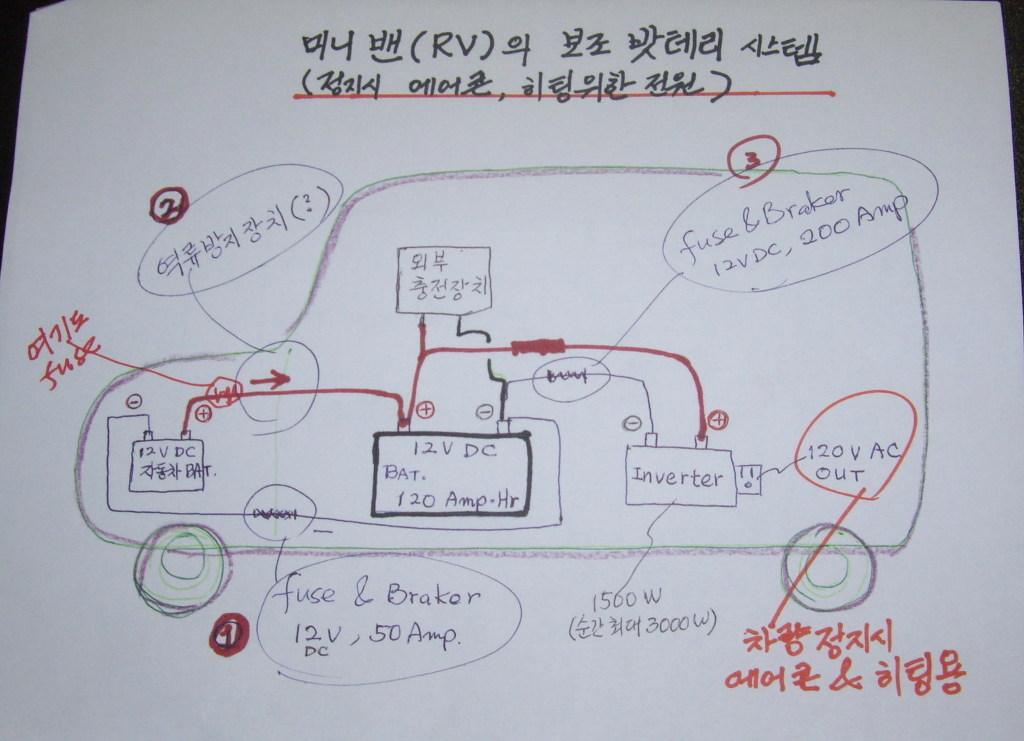 미니 밴(RV)의 보조 밧테리 시스템
(정지시 에어콘, 히팅위한 전원)
3
2
fuse & Braker
12V DC, 200 Amp
역류방지장치(?)
외부
충전장치
여기도
fuse
⊖
⊕
12V DC
自동차 BAT.
⊕
⊖
12V DC
BAT.
120 Amp·Hr
⊖
⊕
Inverter
120V AC
OUT
1
fuse & Braker
12V, 50 Amp.
DC
1500 W
(순간 최대 3000W)
차량 정지시
에어콘 & 히팅용